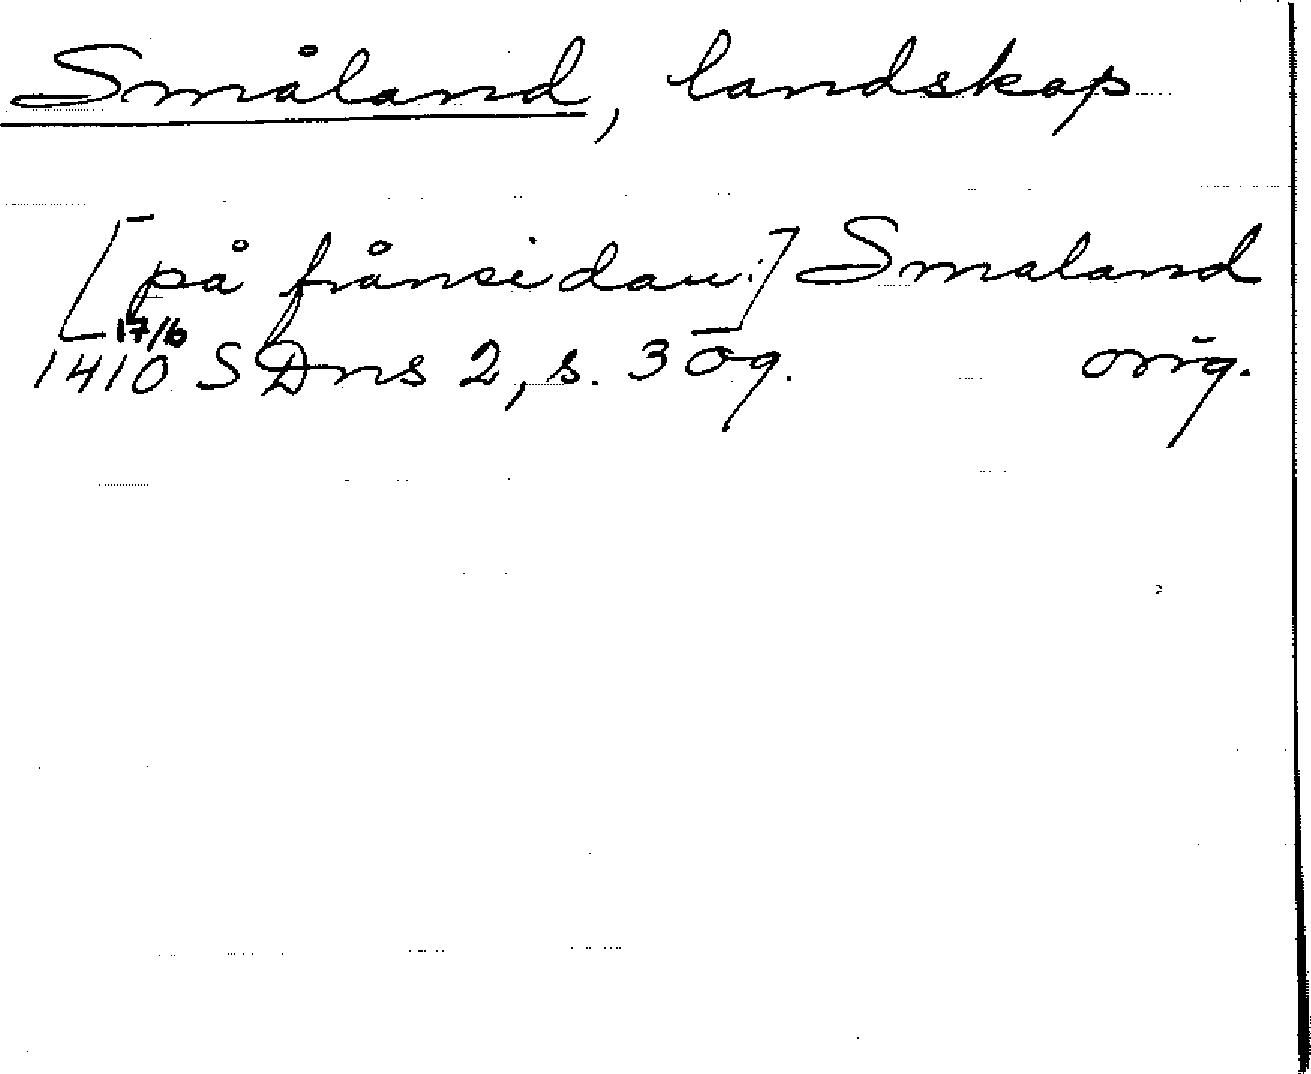 Småland, landskap
[på frånsidan:] Smaland
17/6
1410 SDns 2, s. 309. orig.